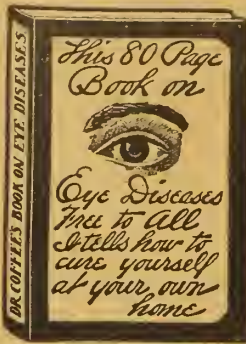 DR. COFFEE'S BOOK ON EYE DISEASES
This 80 Page
Book on
Eye Diseases
Free to All
It tells how to
cure yourself
at your own
home